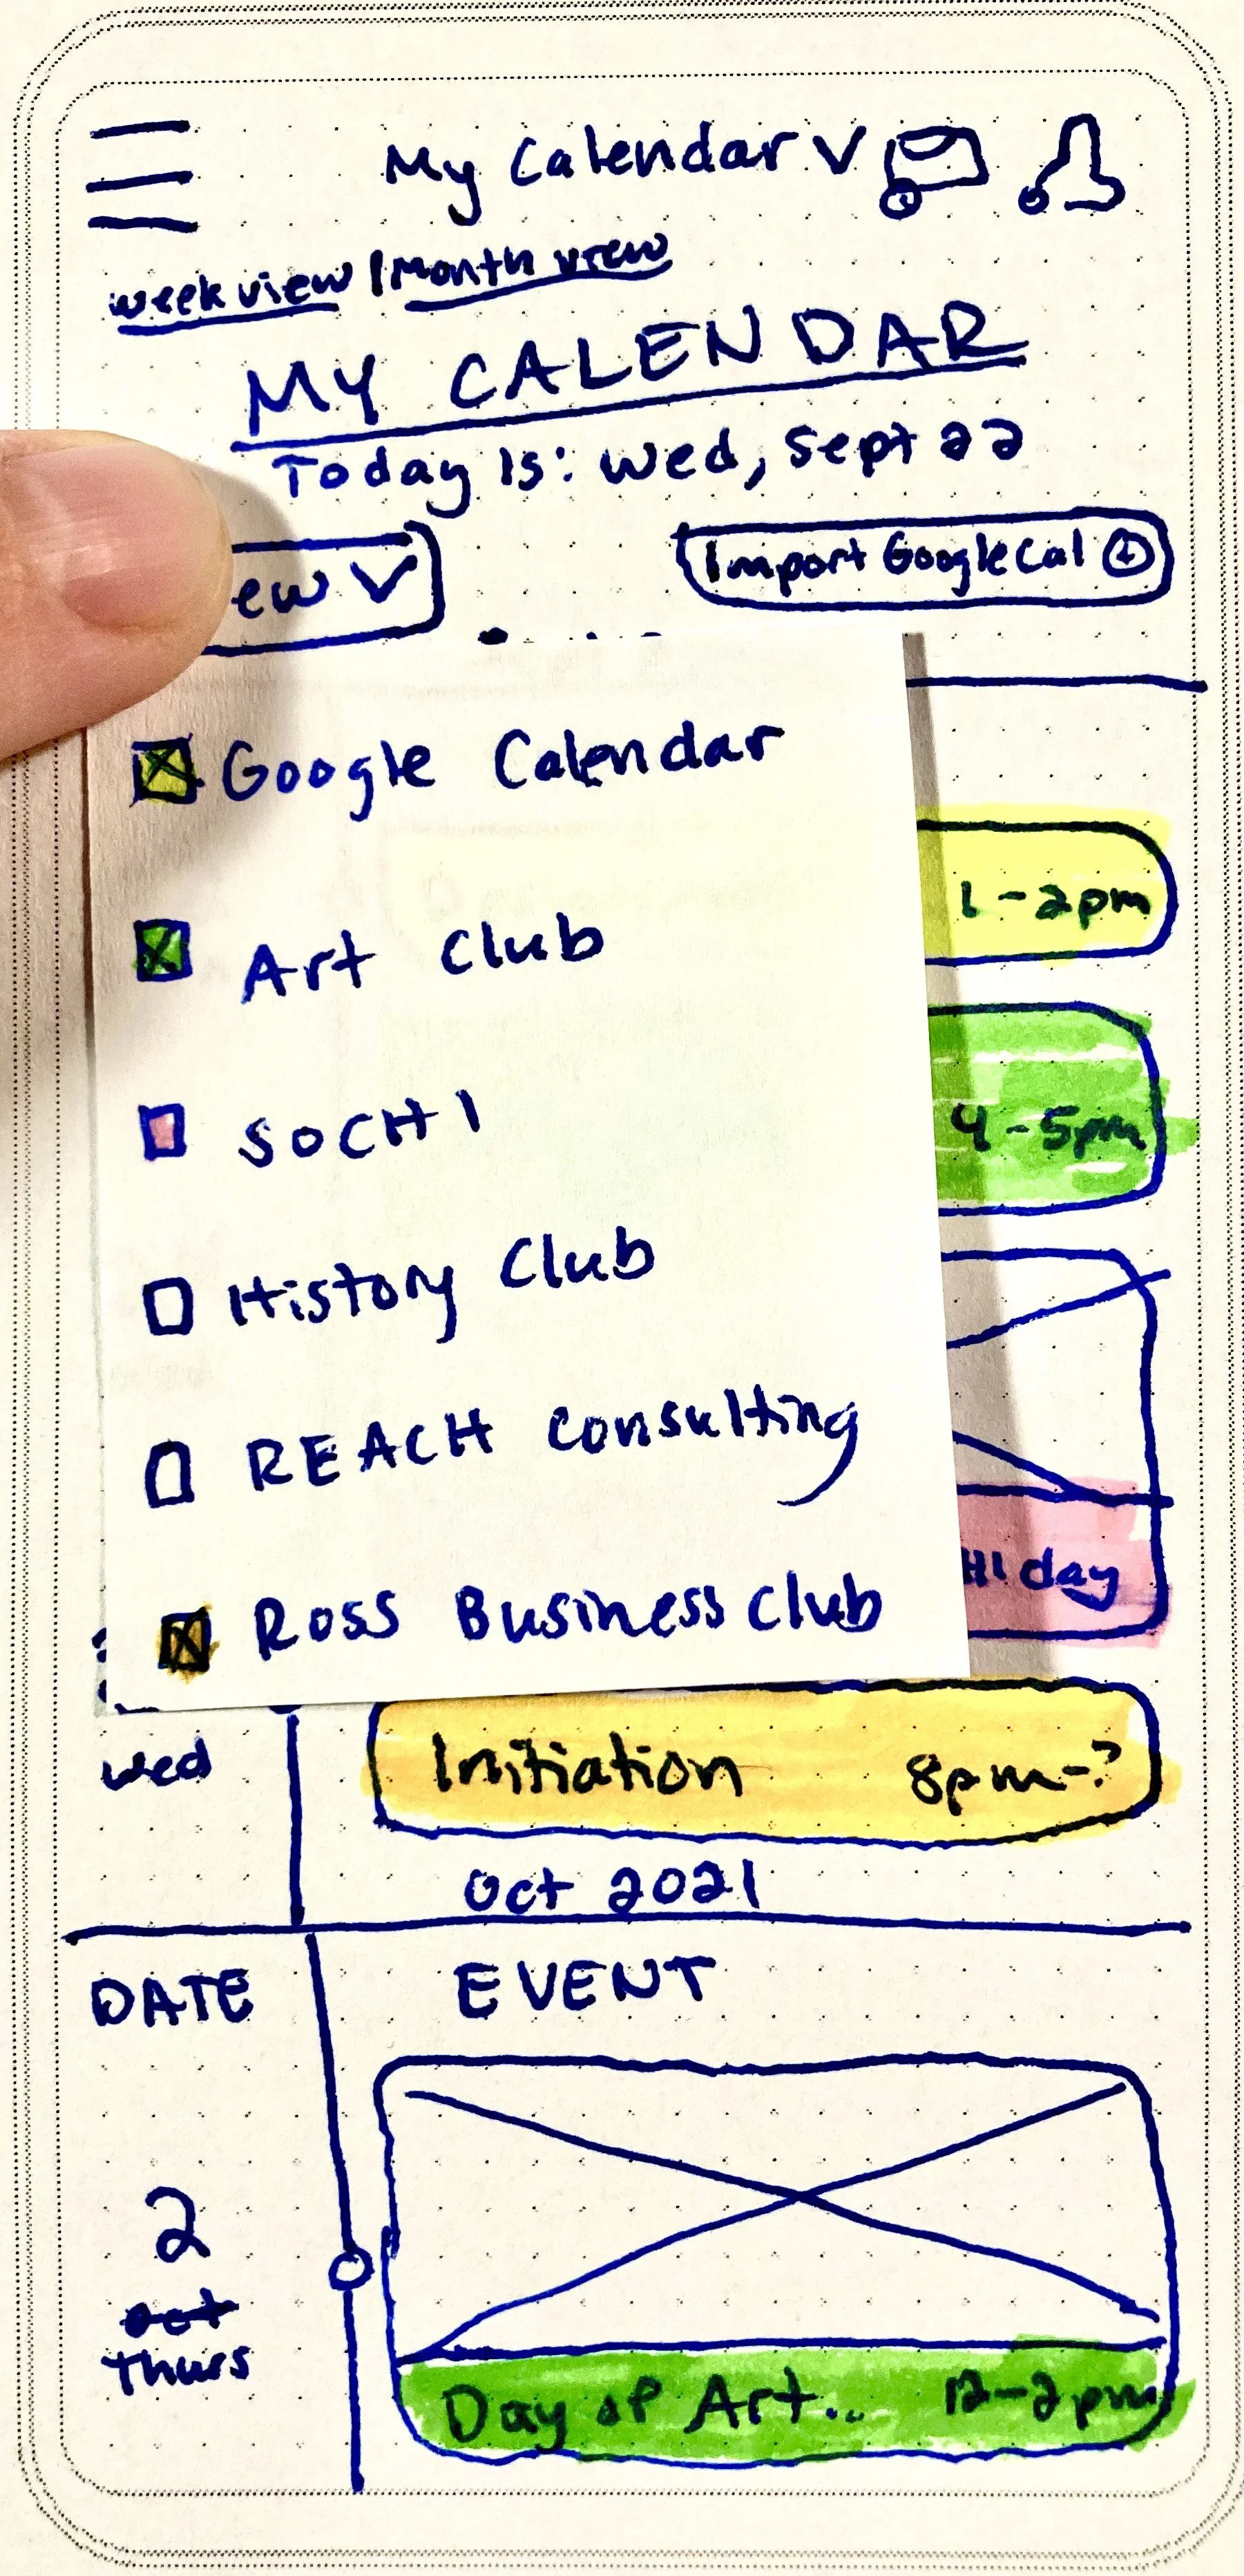 My Calendar V
week view | Month view
MY CALENDAR
Today Is: Wed, Sept 22
ew V
Import Google Cal
Google Calendar
1-2pm
Art Club
4-5pm
SOCHI
History Club
REACH Consulting
HI day
Ross Business Club
Wed
Initiation 8pm-?
Oct 2021
DATE EVENT
2
Thurs
Day of Art... 12-2pm